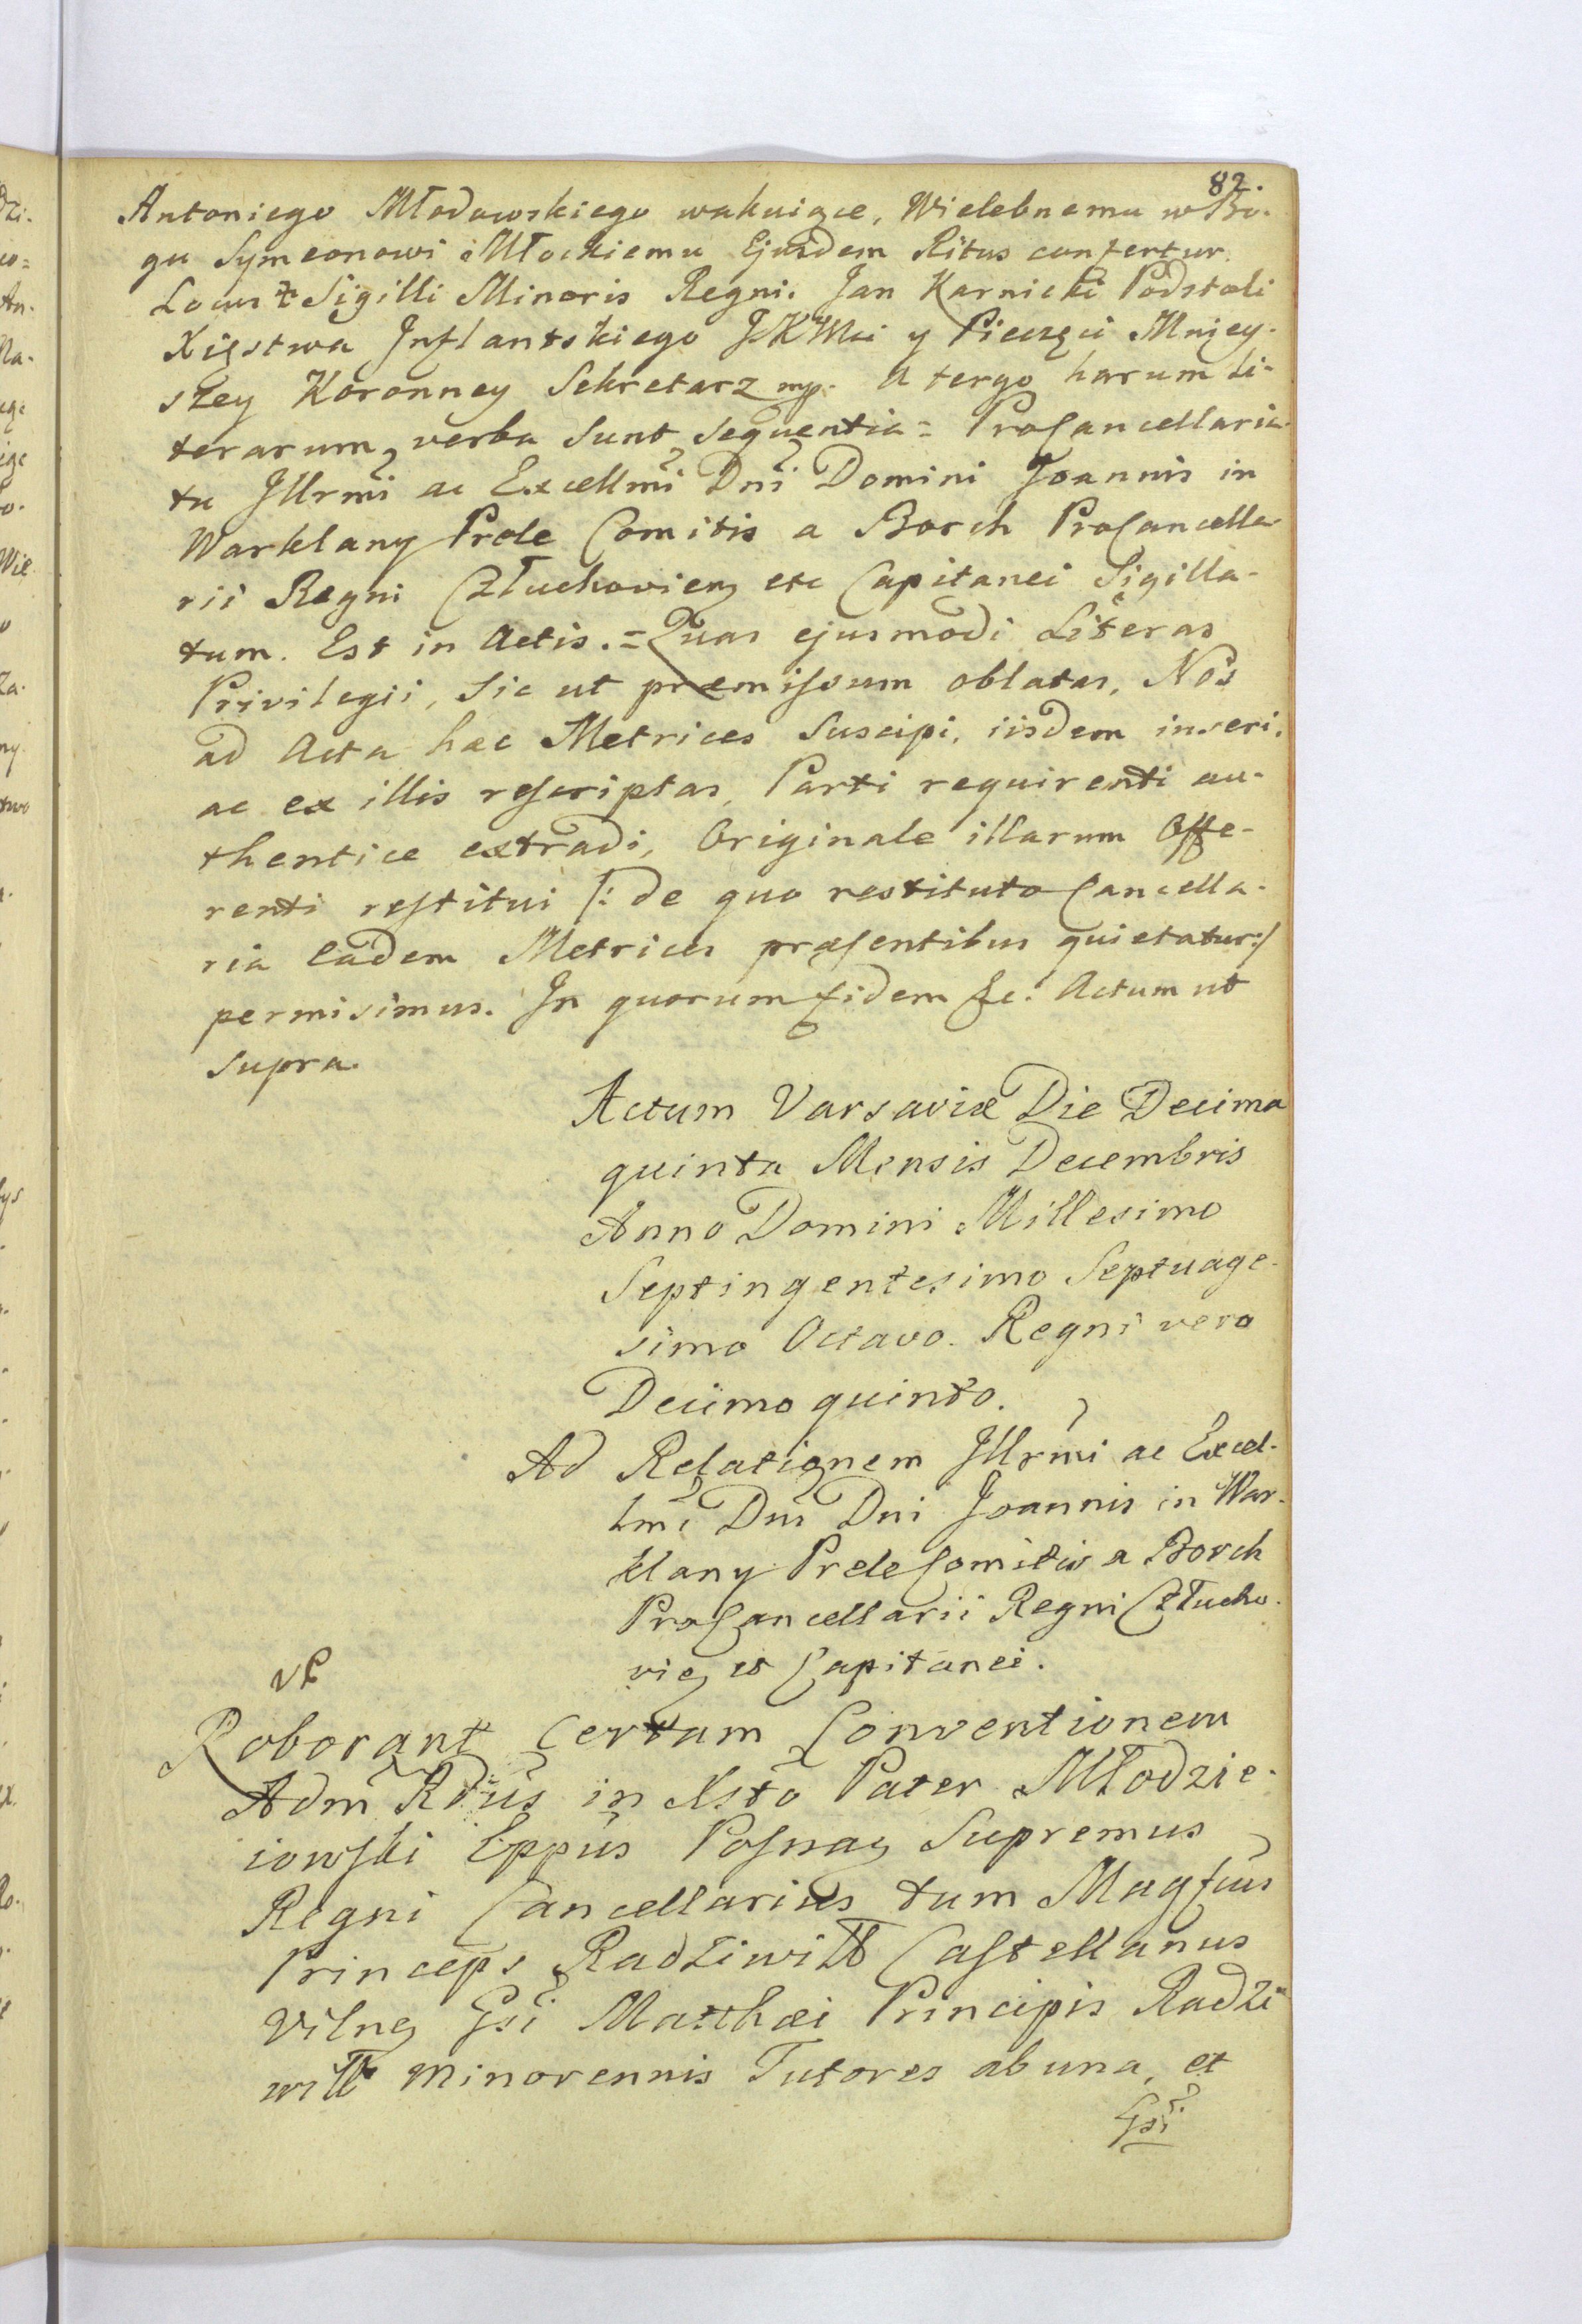 82.
Antoniego Młodowskiego wakuiące, Wielebnemu w Bo-
gu Symeonowi Młockiemu Ejusdem Ritus confertur.
Locus Sigilli Minoris Regni. Jan Karnicki Podstoli
Xięstwa Inflantskiego JKMci y Pieczęci Mniey-
szey Koronney Sekretarz mp. A tergo harum Li-
terarum, verba sunt sequentia = ProCancellaria-
tu Illrmi ac Excellmi Dni Domini Joannis in
Warklany Prele Comitis a Borch ProCancella-
rii Regni Człuchovien etc Capitanei Sigilla-
tum. Est in Actis. = Quas ejusmodi Literas
Privilegii, sic ut præmissum oblatas, Nos
ad Acta hæc Metrices Suscipi, iisdem inseri,
ac ex illis rescriptas, Parti requirenti au-
thentice extradi, Originale illarum Offe-
renti restitui /: de quo restituto Cancella-
ria eadem Metrices præsentibus quietatur :/
permisimus. In quorum fidem &c. Actum ut
supra.
Actum Varsaviæ Die Decima
quinta Mensis Decembris
Anno Domini Millesimo
Septingentesimo Septuage-
simo Octavo. Regni vero
Decimo quinto.
Ad Relationem Illrmi ac Excel-
lmi Dni Dni Joannis in War-
klany Prele Comitis a Borch
ProCancellarii Regni Człucho-
vien et Capitanei.
Roborant Certam Conventionem
Adm Rdus in Xsto Pater Młodzie-
iowski Eppus Posnan Supremus
Regni Cancellarius tum Magfcus
Princeps Radziwiłł Castellanus
Vilnen Gsi Matthæi Principis Radzi
wiłł minorennis Tutores ab una, et
Gsi